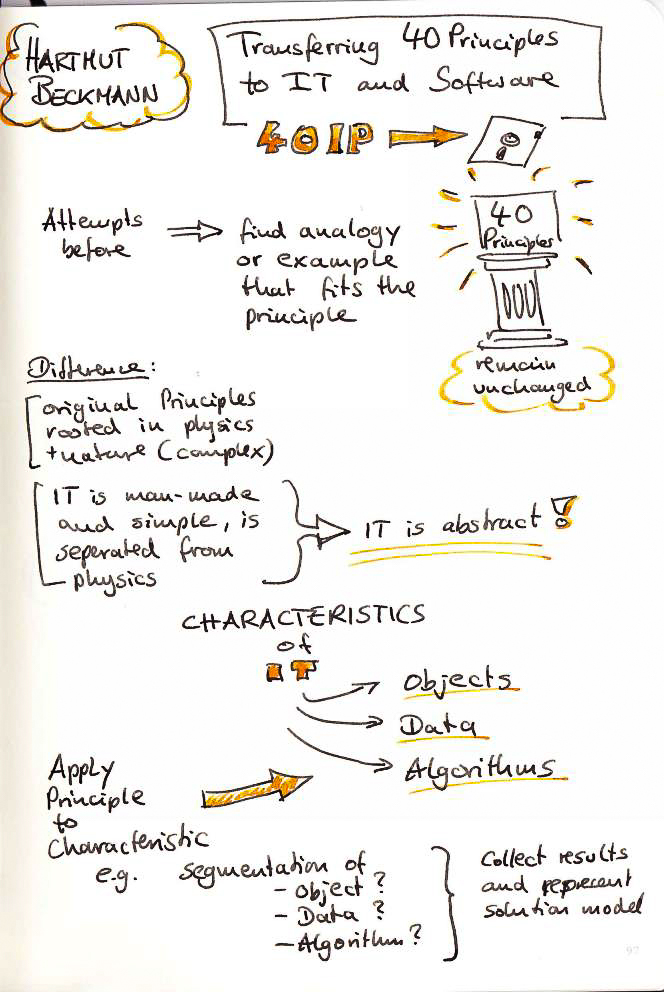 HARTMUT
BECKMANN
Transferring 40 Principles
to IT and Software
40IP
Attempts
before
find analogy
or example
that fits the
principle
40
Principles
remain
unchanged
Difference:
original Principles
rooted in physics
+nature (complex)
IT is man-made
and simple, is
seperated from
physics
IT is abstract!
CHARACTERISTICS
of
IT
Objects
Data
Algorithms
Apply
Principle
to
Characteristic
e.g. segmentation of
- Object?
- Data?
- Algorithm?
Collect results
and represent
solution model
97